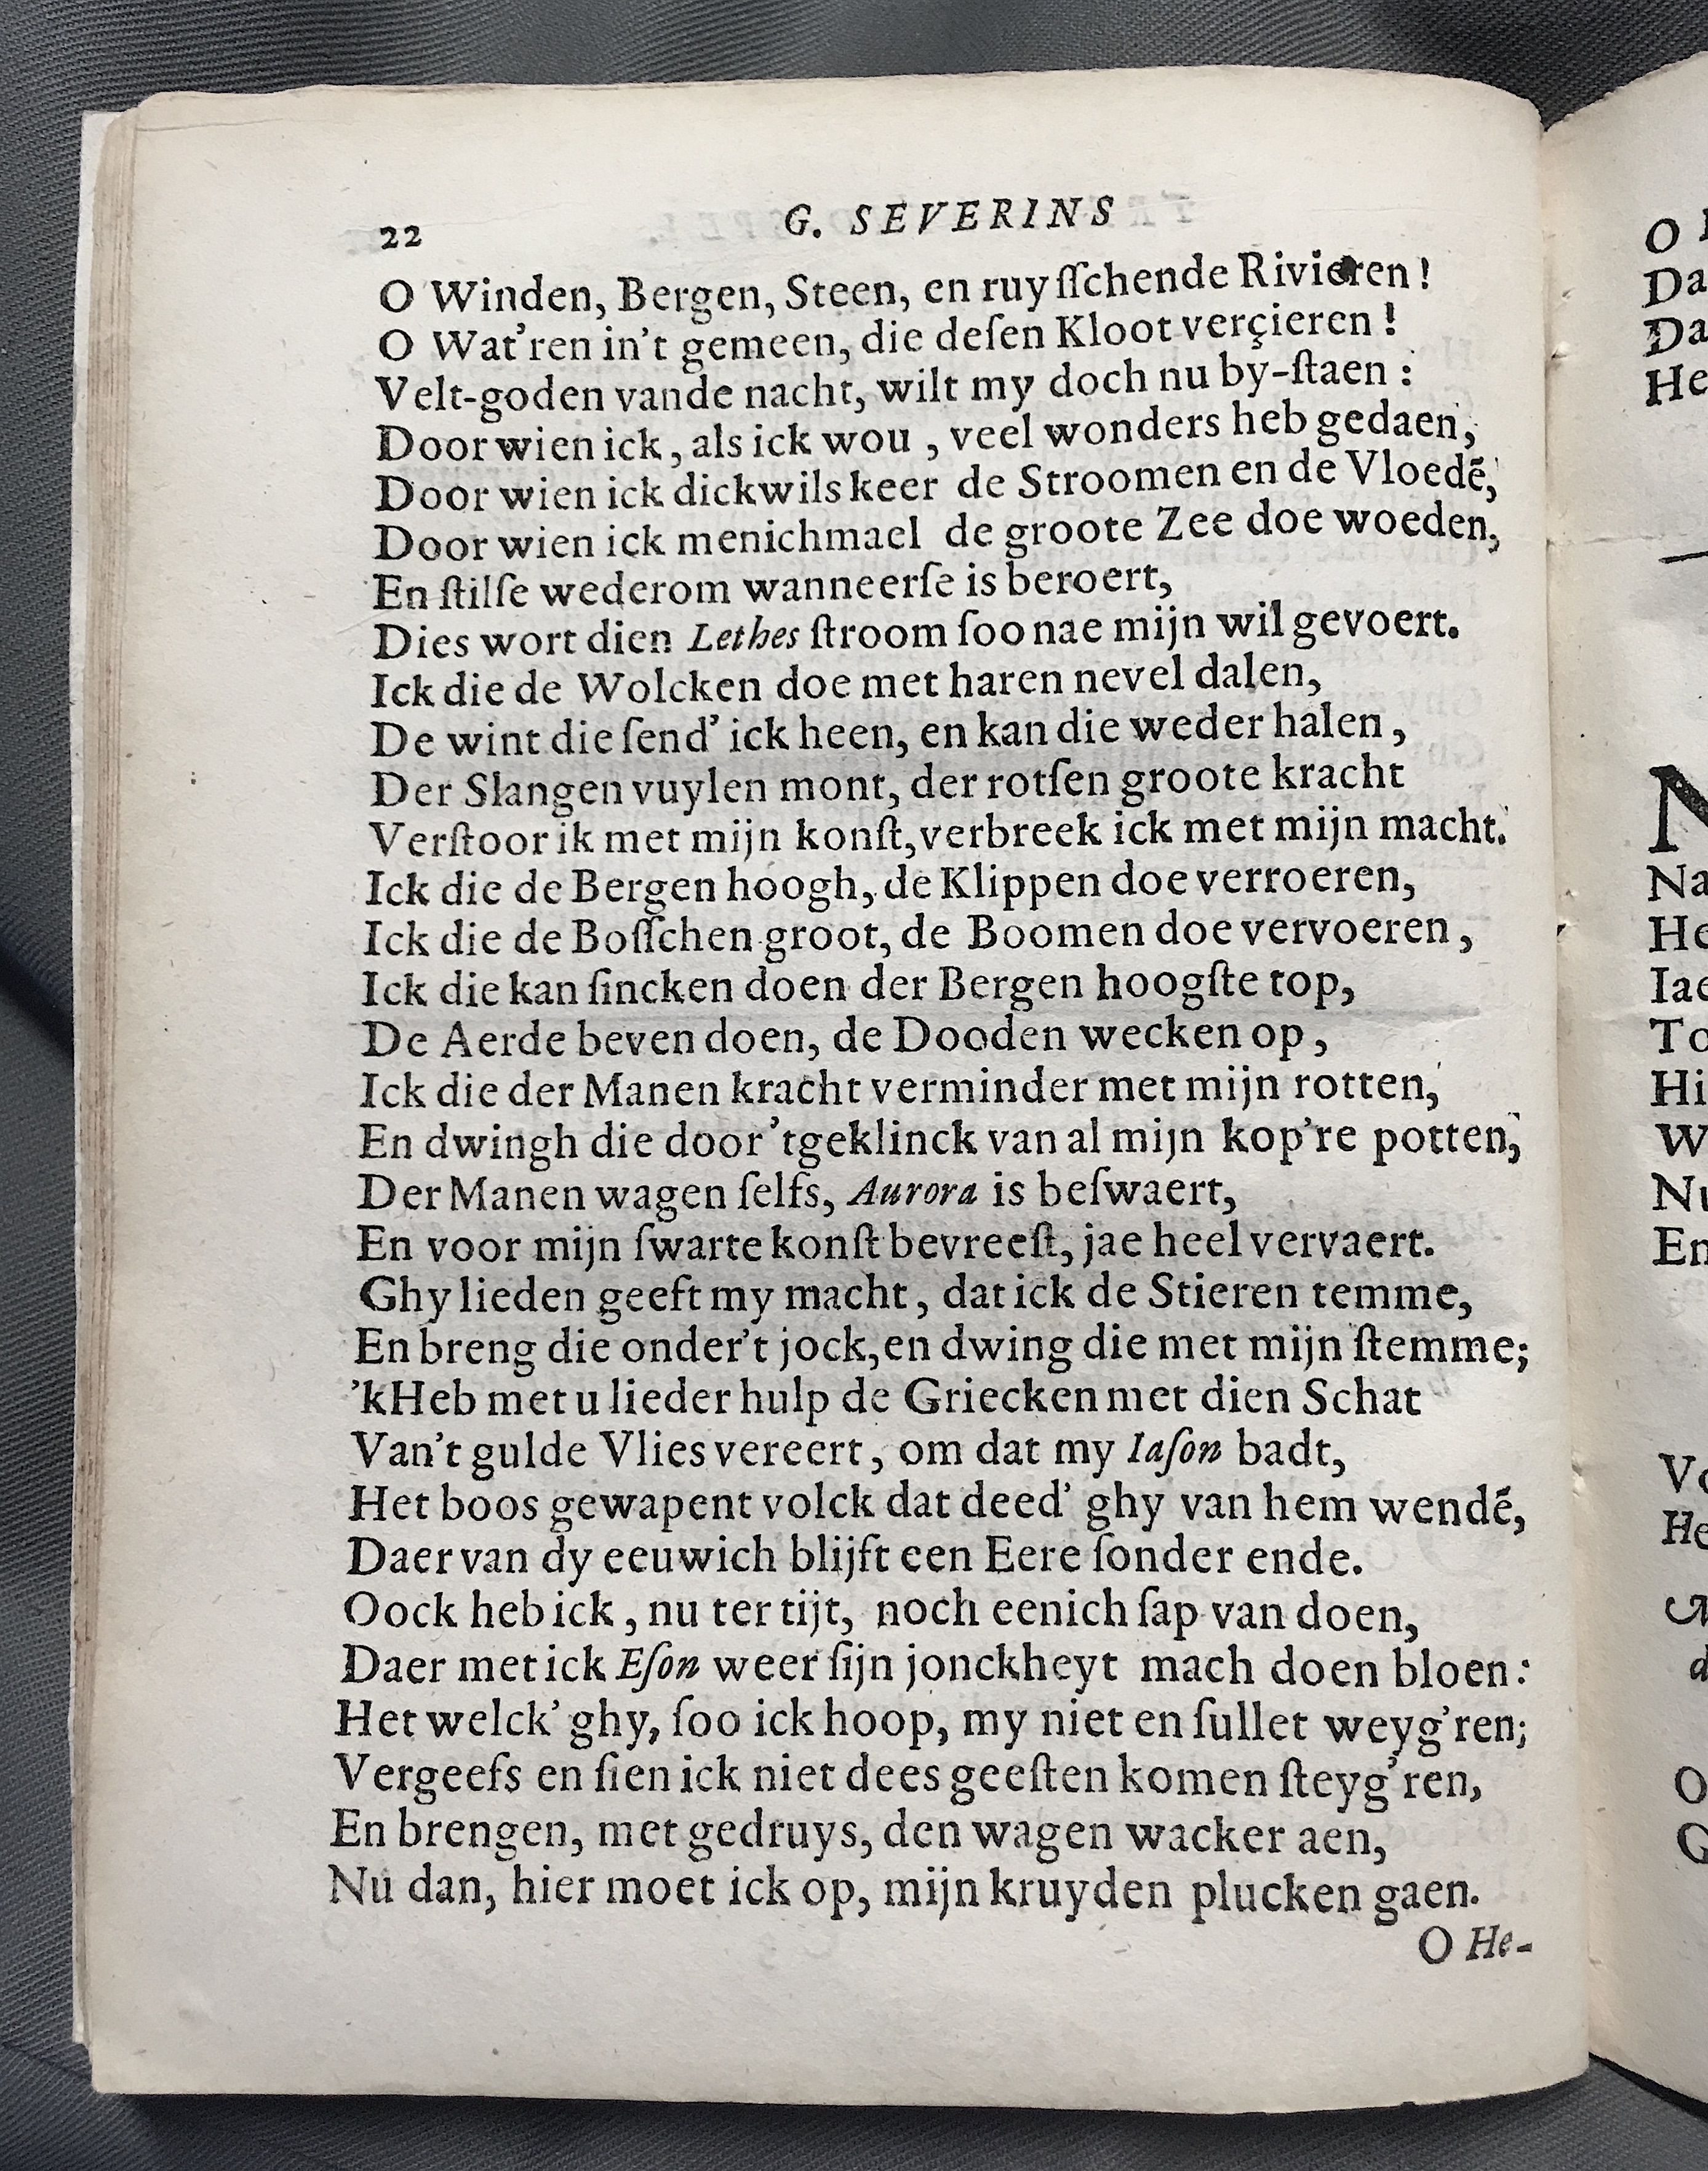 22 G. SEVERINS
O Winden, Bergen, Steen, en ruyſſchende Rivieren!
O Wat'ren in't gemeen, die deſen Kloot verçieren!
Velt-goden vande nacht, wilt my doch nu by-ſtaen:
Door wien ick, als ick wou, veel wonders heb gedaen,
Door wien ick dickwils keer de Stroomen en de Vloedẽ,
Door wien ick menichmael de groote Zee doe woeden,
En ſtilſe wederom wanneerſe is beroert,
Dies wort dien Lethes ſtroom ſoo nae mijn wil gevoert.
Ick die de Wolcken doe met haren nevel dalen,
De wint die ſend' ick heen, en kan die weder halen,
Der Slangen vuylen mont, der rotſen groote kracht
Verſtoor ik met mijn konſt, verbreek ick met mijn macht.
Ick die de Bergen hoogh, de Klippen doe verroeren,
Ick die de Boſſchen groot, de Boomen doe vervoeren,
Ick die kan ſincken doen der Bergen hoogſte top,
De Aerde beven doen, de Dooden wecken op,
Ick die der Manen kracht verminder met mijn rotten,
En dwingh die door 'tgeklinck van al mijn kop're potten,
Der Manen wagen ſelfs, Aurora is beſwaert,
En voor mijn ſwarte konſt bevreeſt, jae heel vervaert.
Ghy lieden geeft my macht, dat ick de Stieren temme,
En breng die onder't jock, en dwing die met mijn ſtemme;
'kHeb met u lieder hulp de Griecken met dien Schat
Van't gulde Vlies vereert, om dat my Iaſon badt,
Het boos gewapent volck dat deed' ghy van hem wendẽ,
Daer van dy eeuwich blijft een Eere ſonder ende.
Oock heb ick, nu ter tijt, noch eenich ſap van doen,
Daer met ick Eſon weer ſijn jonckheyt mach doen bloen:
Het welck' ghy, ſoo ick hoop, my niet en ſullet weyg'ren;
Vergeefs en ſien ick niet dees geeſten komen ſteyg'ren,
En brengen, met gedruys, den wagen wacker aen,
Nu dan, hier moet ick op, mijn kruyden plucken gaen.
O He-
O
Da
Da
He
N
Na
He
Iae
To
Hi
W
Nu
En
Vo
He
O
G